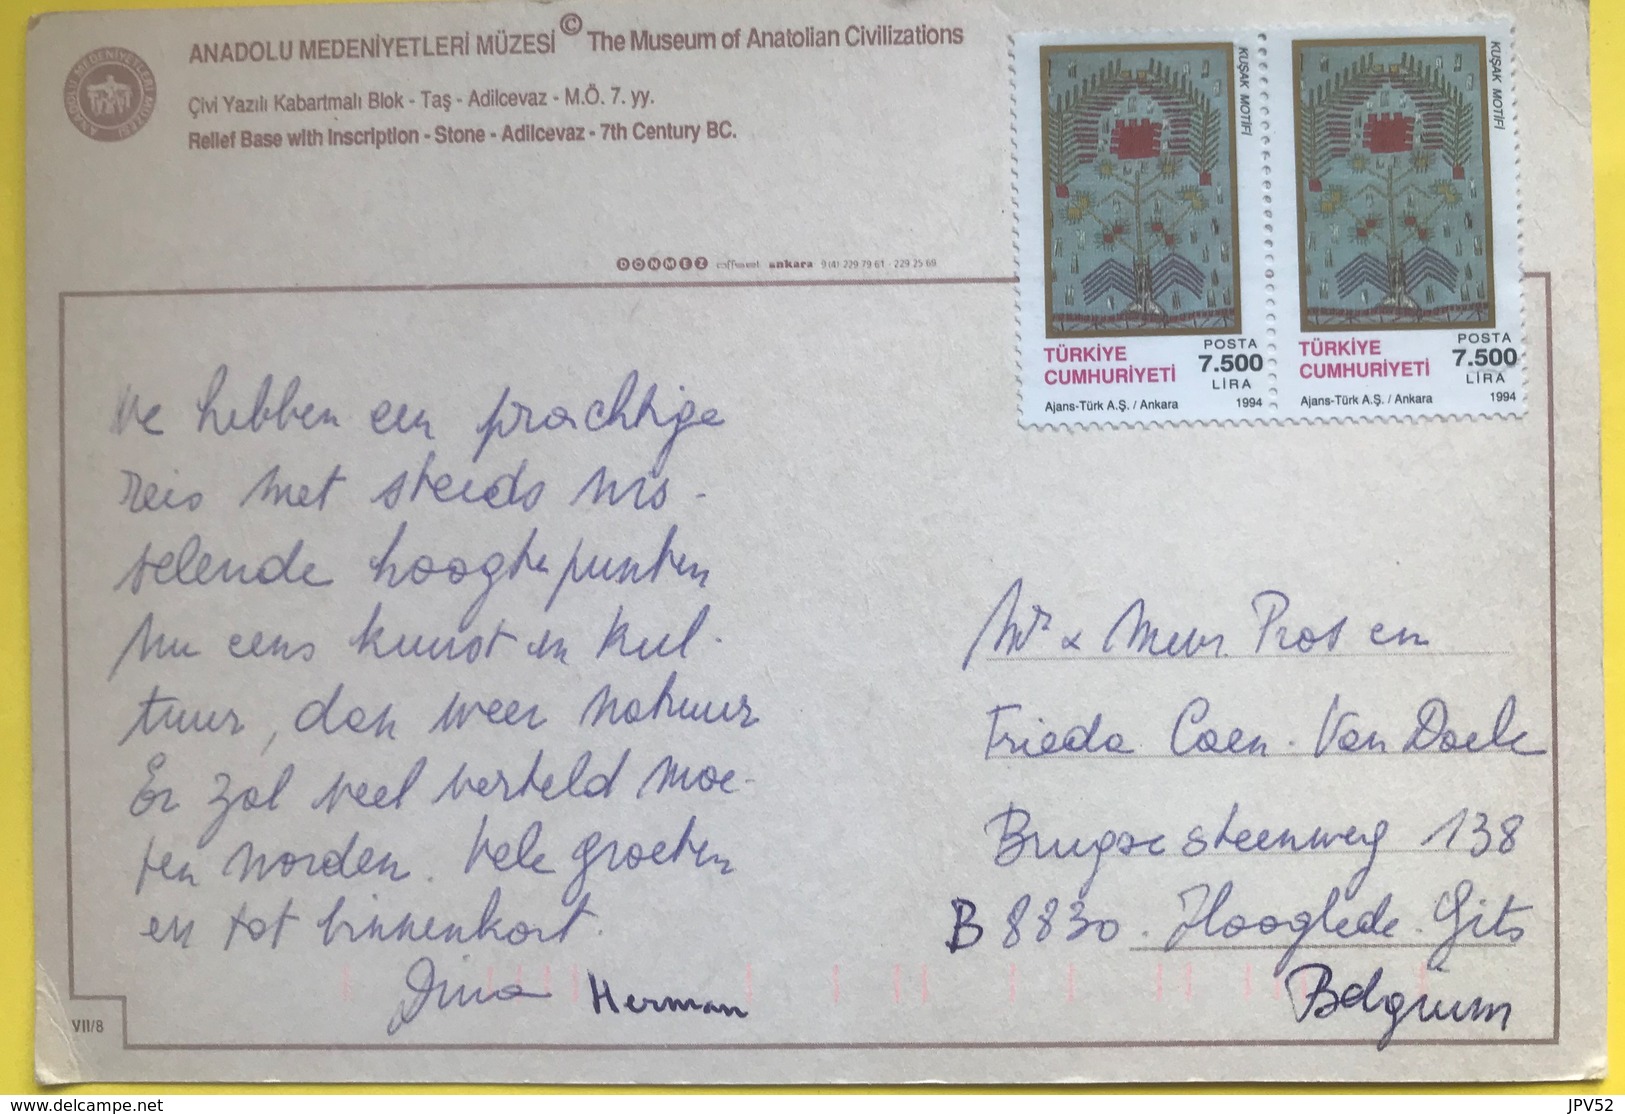 ANADOLU MEDENİYETLERİ MÜZESİ © The Museum of Anatolian Civilizations
ANADOLU MEDENİYETLERİ MÜZESİ
Çivi Yazılı Kabartmalı Blok - Taş - Adilcevaz - M.Ö. 7. yy.
Relief Base with Inscription - Stone - Adilcevaz - 7th Century BC.
DÖNMEZ offset ankara 9(4) 229 79 61 - 229 25 69
KUŞAK MOTİFİ
TÜRKİYE CUMHURİYETİ
POSTA 7.500 LİRA
Ajans-Türk A.Ş. / Ankara 1994
KUŞAK MOTİFİ
TÜRKİYE CUMHURİYETİ
POSTA 7.500 LİRA
Ajans-Türk A.Ş. / Ankara 1994
We hebben een prachtige
reis met steeds wis-
selende hoogtepunten
nu eens kunst en kul-
tuur, dan weer natuur
Er zal veel verteld moe-
ten worden. Vele groeten
en tot binnenkort.
Dina Herman
Mr & Mevr. Pros en
Frieda Coen - Van Daele
Brugse steenweg 138
B 8830 - Hooglede - Gits
Belgium
VII/8
www.delcampe.net
JPV52